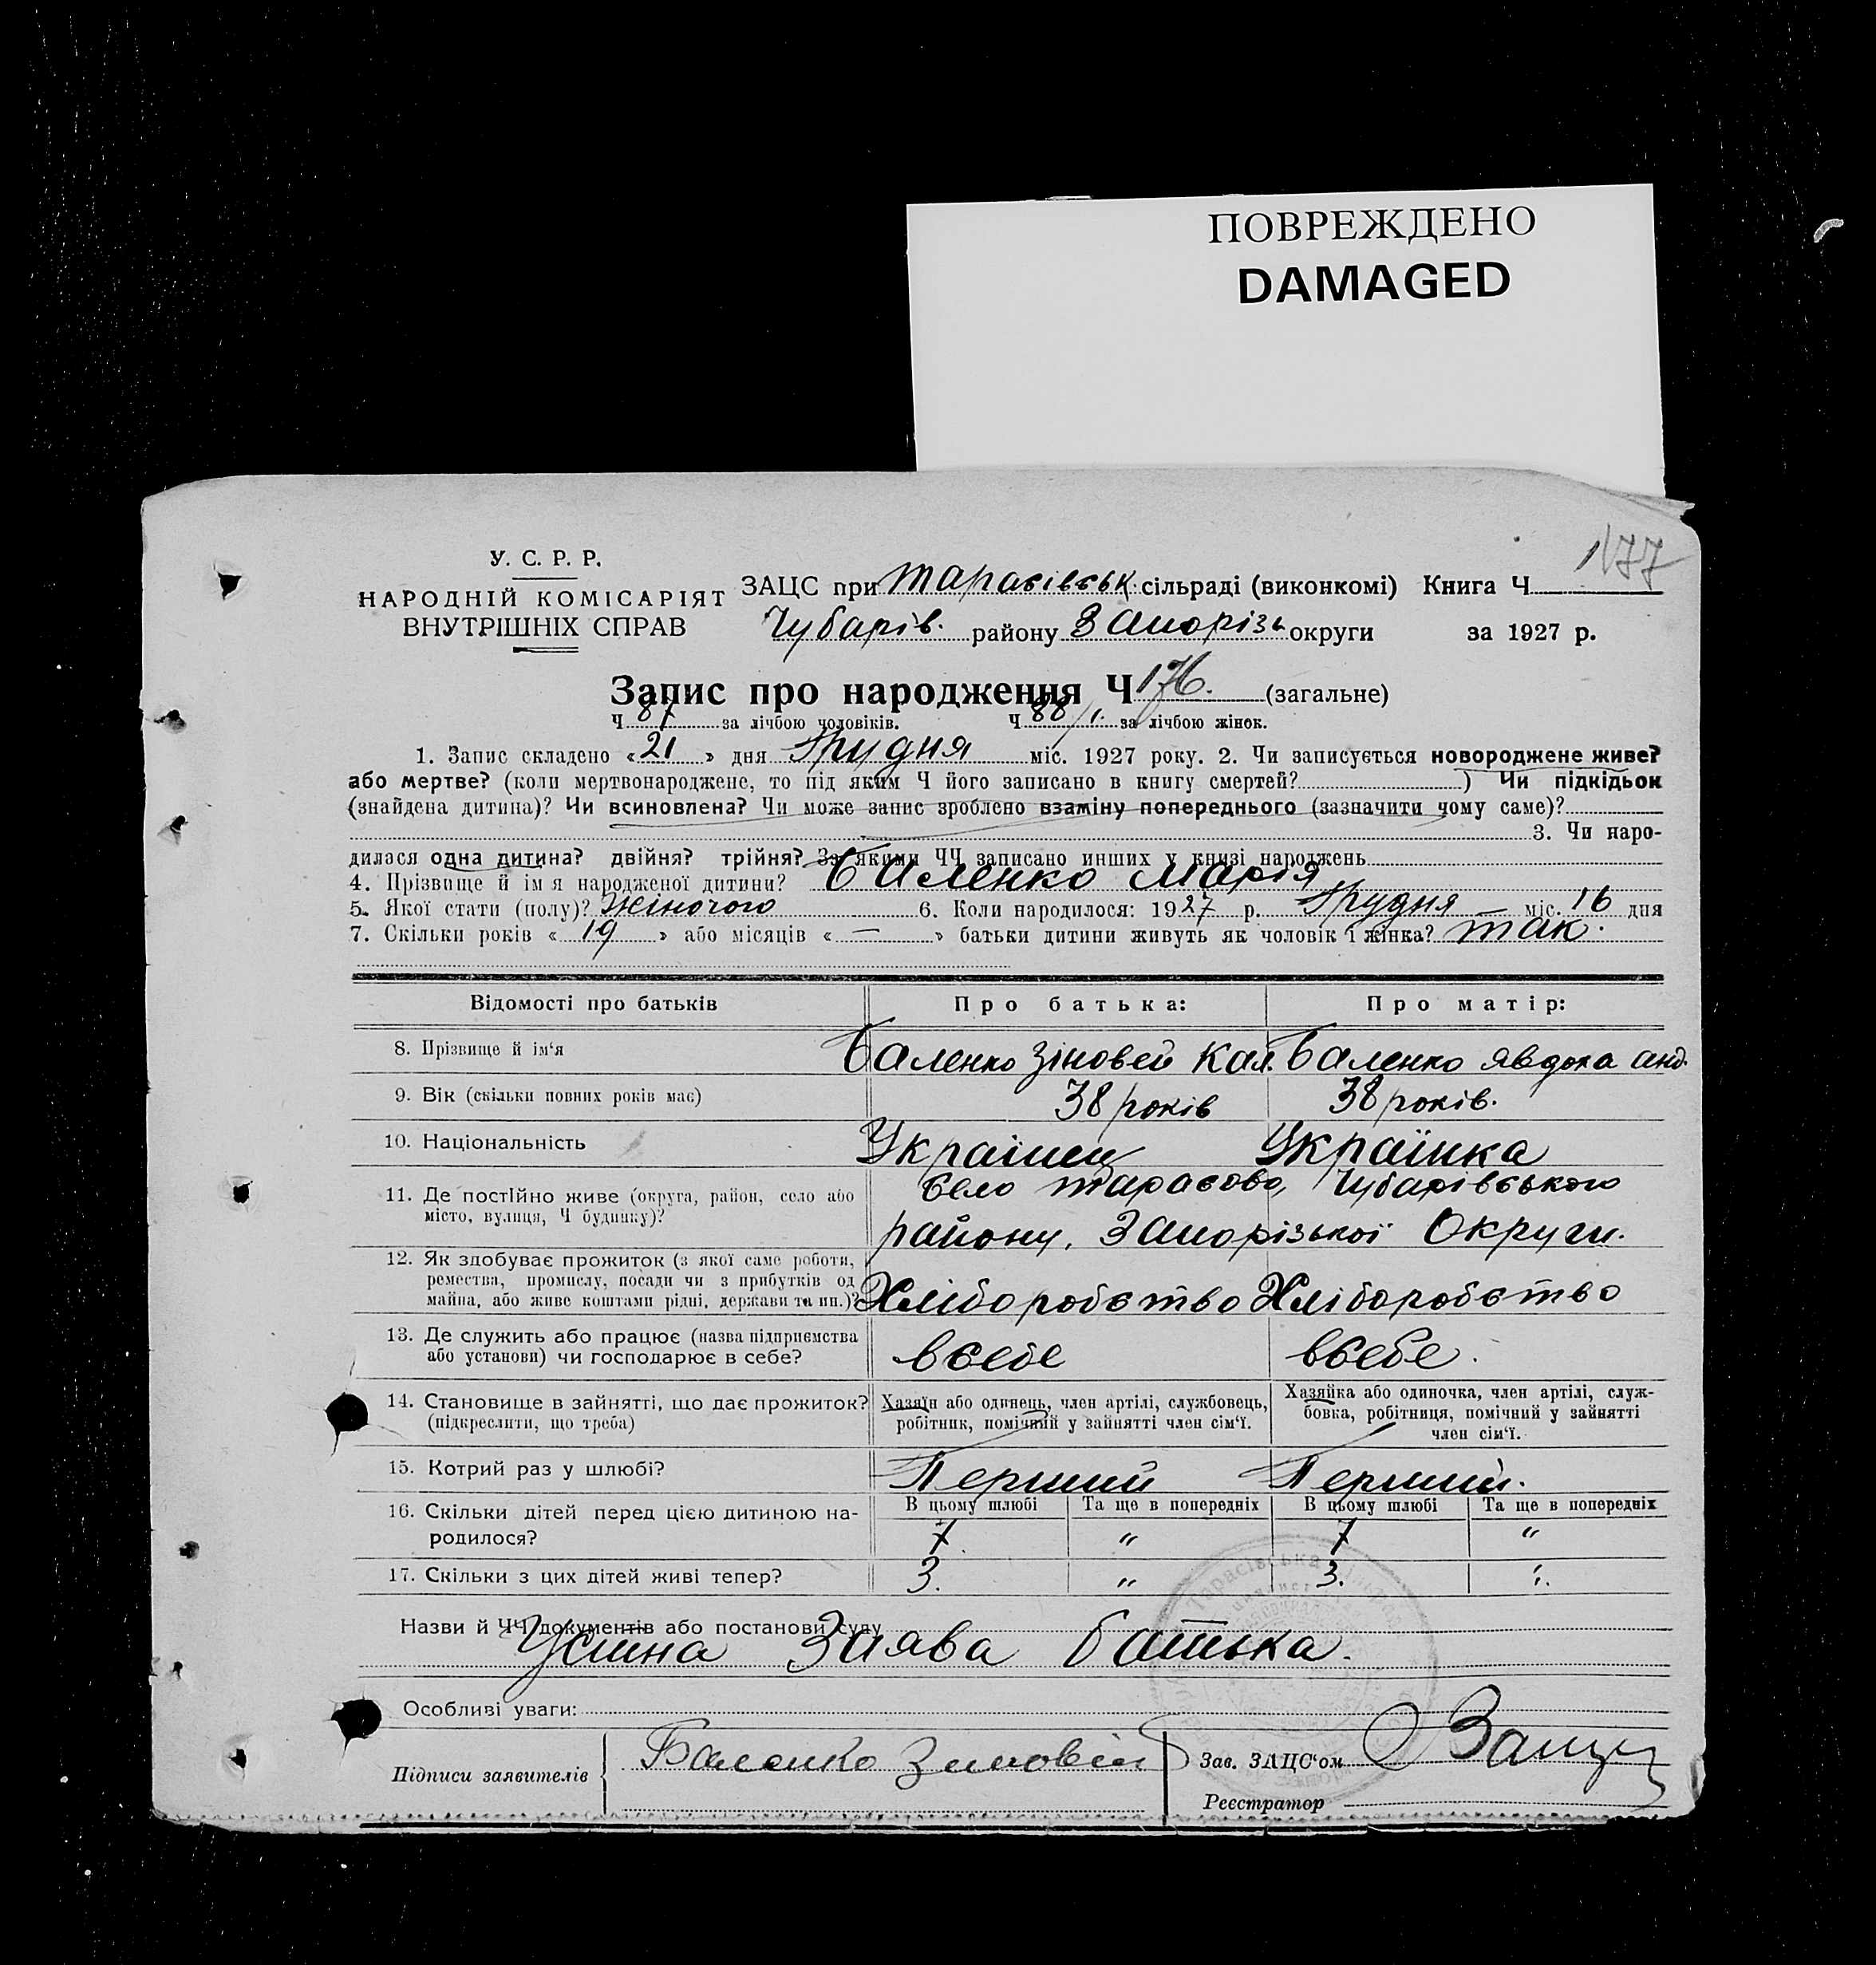 ПОВРЕЖДЕНО
DAMAGED
177
У. С. Р. Р.
НАРОДНІЙ КОМІСАРІЯТ
ВНУТРІШНІХ СПРАВ
ЗАЦС при Тарасівськ. сільраді (виконкомі) Книга Ч
Чубарів. району Запорізь округи за 1927 р.
Запис про народження Ч 176. (загальне)
Ч 87 за лічбою чоловіків. Ч 88/1. за лічбою жінок.
1. Запис складено «21» дня Грудня міс. 1927 року. 2. Чи записується новороджене живе?
або мертве? (коли мертвонароджене, то під яким Ч його записано в книгу смертей?) Чи підкідьок
(знайдена дитина)? Чи всиновлена? Чи може запис зроблено взаміну попереднього (зазначити чому саме)?
3. Чи наро-
дилася одна дитина? двійня? трійня? За якими ЧЧ записано инших у книзі народжень
4. Прізвище й ім я народженої дитини? Баленко Марія
5. Якої стати (полу)? Жіночого 6. Коли народилося: 1927 р. Грудня міс. 16 дня
7. Скільки років «19» або місяців «—» батьки дитини живуть як чоловік і жінка? Так.
Відомості про батьків Про батька: Про матір:
8. Прізвище й ім'я Баленко Зіновей Кал. Баленко Явдоха Анд.
9. Вік (скільки повних років має) 38 років 38 років.
10. Національність Українец Українка
11. Де постійно живе (округа, район, село або
місто, вулиця, Ч будинку)?
Село Тарасово, Чубарівського
району, Запорізької Округи.
12. Як здобуває прожиток (з якої саме роботи,
ремества, промислу, посади чи з прибутків од
майна, або живе коштами рідні, держави та ин.)? Хліборобство Хліборобство
13. Де служить або працює (назва підприємства
або установи) чи господарює в себе? всебе всебе.
14. Становище в зайнятті, що дає прожиток?
(підкреслити, що треба)
Хазяїн або одинець, член артілі, службовець,
робітник, помічний у зайнятті член сім'ї.
Хазяйка або одиночка, член артілі, служ-
бовка, робітниця, помічний у зайнятті
член сім'ї.
15. Котрий раз у шлюбі? Перший Перший.
16. Скільки дітей перед цією дитиною на-
родилося?
В цьому шлюбі Та ще в попередніх В цьому шлюбі Та ще в попередніх
7. " 7 "
17. Скільки з цих дітей живі тепер? 3. " 3. ".
Назви й ЧЧ документів або постанови суду
Усина Заява батька.
Особливі уваги:
Підписи заявителів Баленко Зиновій
Зав. ЗАЦС'ом
Реєстратор